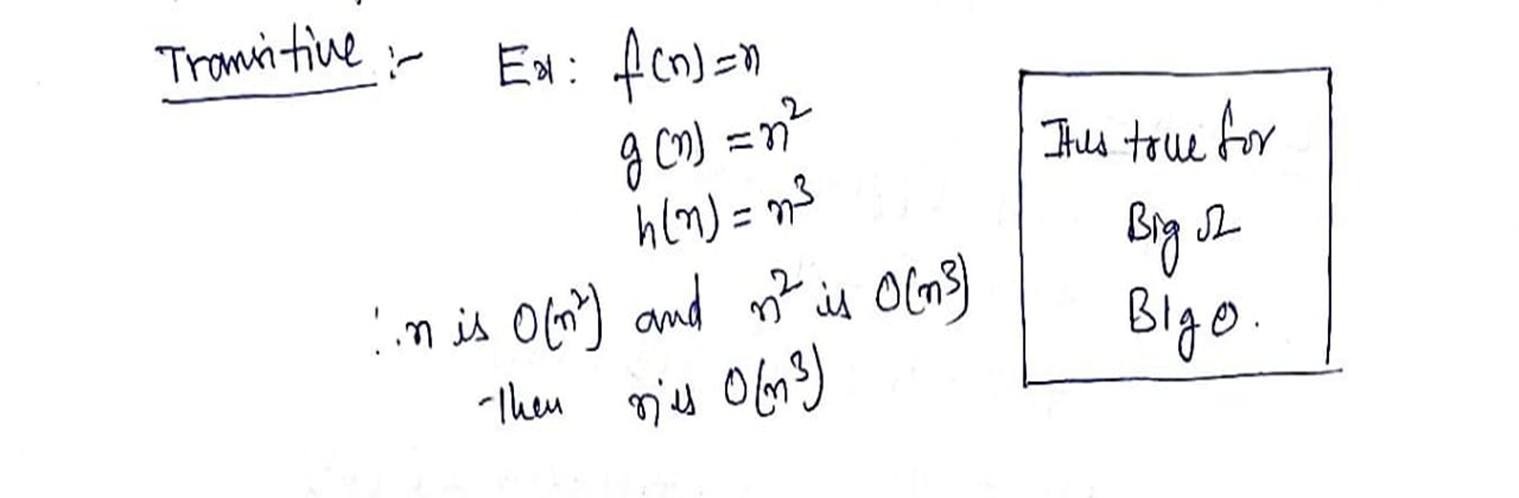 Transitive :- Ex: f(n) = n
g(n) = n²
h(n) = n³
∴ n is O(n²) and n² is O(n³)
Then n is O(n³)
It is true for
Big Ω
Big θ.